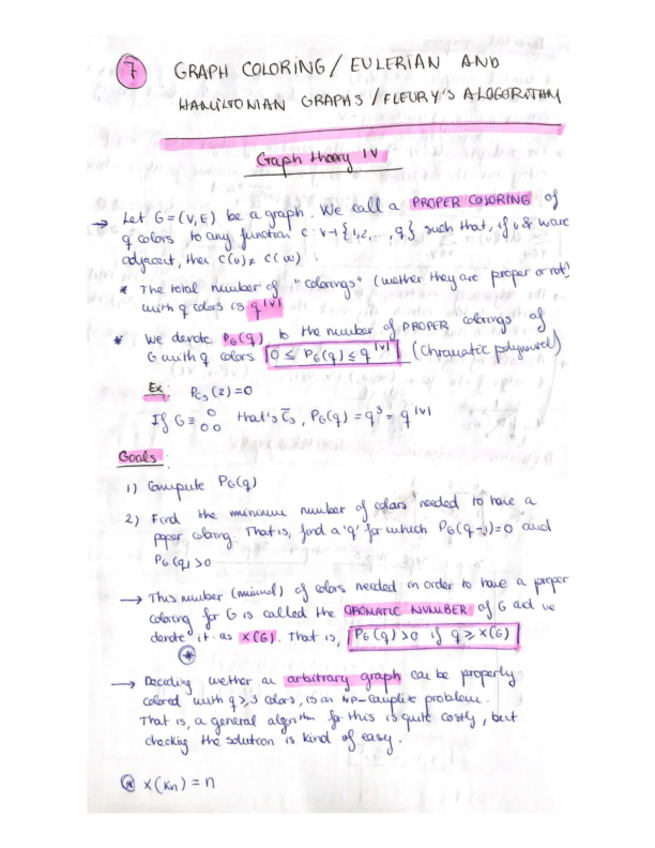 7 GRAPH COLORING / EULERIAN AND
HAMILTONIAN GRAPHS / FLEURY'S ALOGORITHM
Graph theory IV
→ Let G=(V,E) be a graph. We call a PROPER COLORING of
q colors to any function c: V→{1,2,..., q} such that, if v & w are
adjacent, then c(v)≠ c(w)
* The total number of "colorings" (wether they are proper or not)
with q colors is q^|V|
* We denote P_G(q) to the number of PROPER colorings of
G with q colors 0 ≤ P_G(q) ≤ q^|V| (Chromatic polynomial)
Ex: P_C3(2)=0
If G≡ that's C̅3, P_G(q) = q^3 = q^|V|
Goals:
1) Compute P_G(q)
2) Find the minimum number of colors needed to have a
proper coloring. That is, find a 'q' for which P_G(q-1)=0 and
P_G(q)>0
→ This number (minimal) of colors needed in order to have a proper
coloring for G is called the CROMATIC NUMBER of G and we
denote it as χ(G). That is, P_G(q)>0 if q ≥ χ(G)
*
→ Deciding wether an arbitrary graph can be properly
colored with q≥3 colors, is an NP-complete problem.
That is, a general algorithm for this is quite costly, but
checking the solution is kind of easy.
* χ(Kn) = n